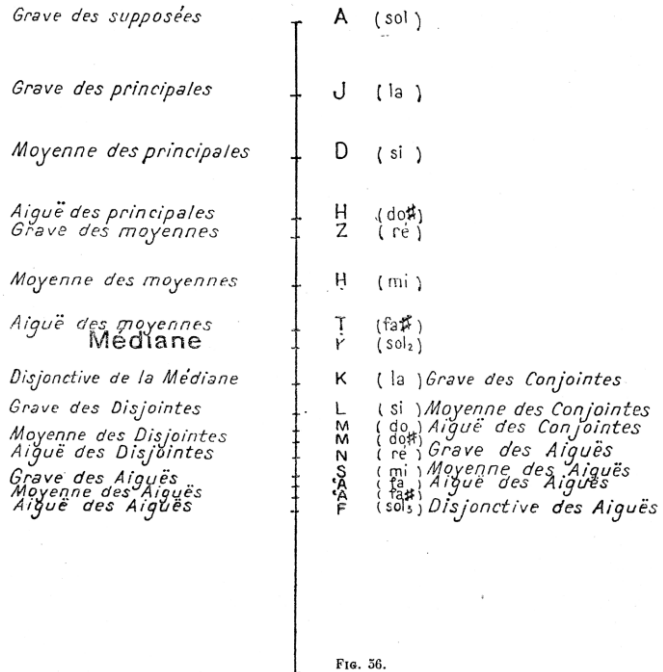 Grave des supposées A (sol)
Grave des principales J (la)
Moyenne des principales D (si)
Aiguë des principales H (do#)
Grave des moyennes Z (ré)
Moyenne des moyennes Ḥ (mi)
Aiguë des moyennes Ṭ (fa#)
Médiane Y (sol₂)
Disjonctive de la Médiane K (la) Grave des Conjointes
Grave des Disjointes L (si) Moyenne des Conjointes
M (do) Aiguë des Conjointes
Moyenne des Disjointes M (do#)
Aiguë des Disjointes N (ré) Grave des Aiguës
S (mi) Moyenne des Aiguës
Grave des Aiguës ‘A (fa) Aiguë des Aiguës
Moyenne des Aiguës ‘A (fa#)
Aiguë des Aiguës F (sol₃) Disjonctive des Aiguës
Fig. 56.